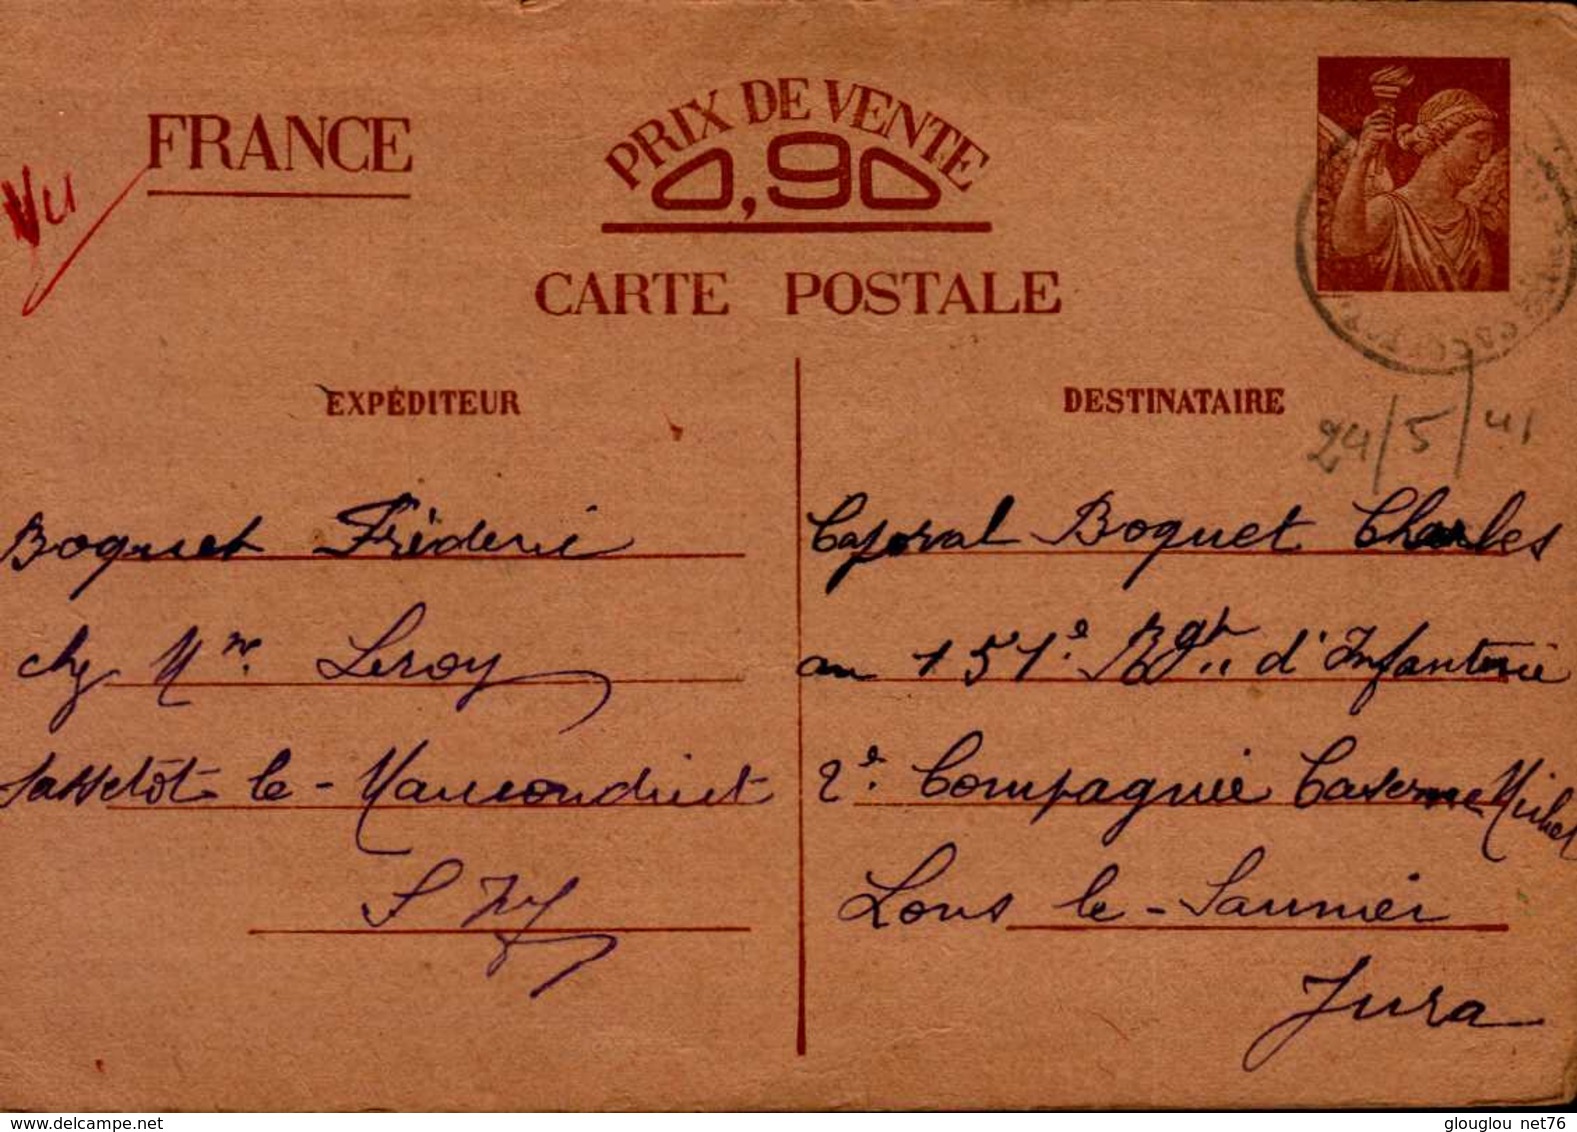 FRANCE
PRIX DE VENTE
0,90
CARTE POSTALE
Vu
EXPÉDITEUR
Boquet Fréderic
chez Mr. Leroy
Sassetôt-le-Mauconduit
S Infre
DESTINATAIRE
24/5/41
Caporal Boquet Charles
au 151e Rgt d'Infanterie
2e Compagnie Caserne Michel
Lons le-Saunier
Jura
www.delcampe.net
glouglou net76